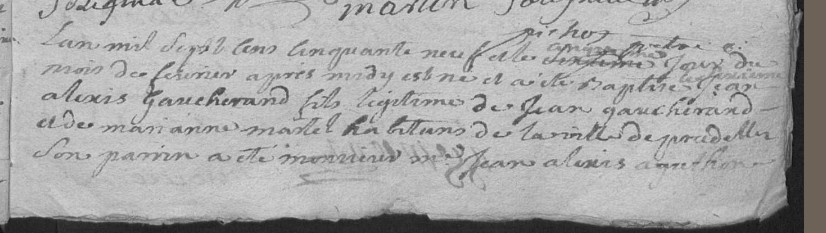 martin
pichot
Lan mil Sept Cens Cinquante neuf et le Sixieme Jour du
mois de fevrier apres midy est ne et a ete Baptise Jean
alexis Gaucherand fils legitime de Jean gaucherand
et de marianne martel habitans de la ville de pradelles
Son parrin a ete monsieur mr Jean alexis